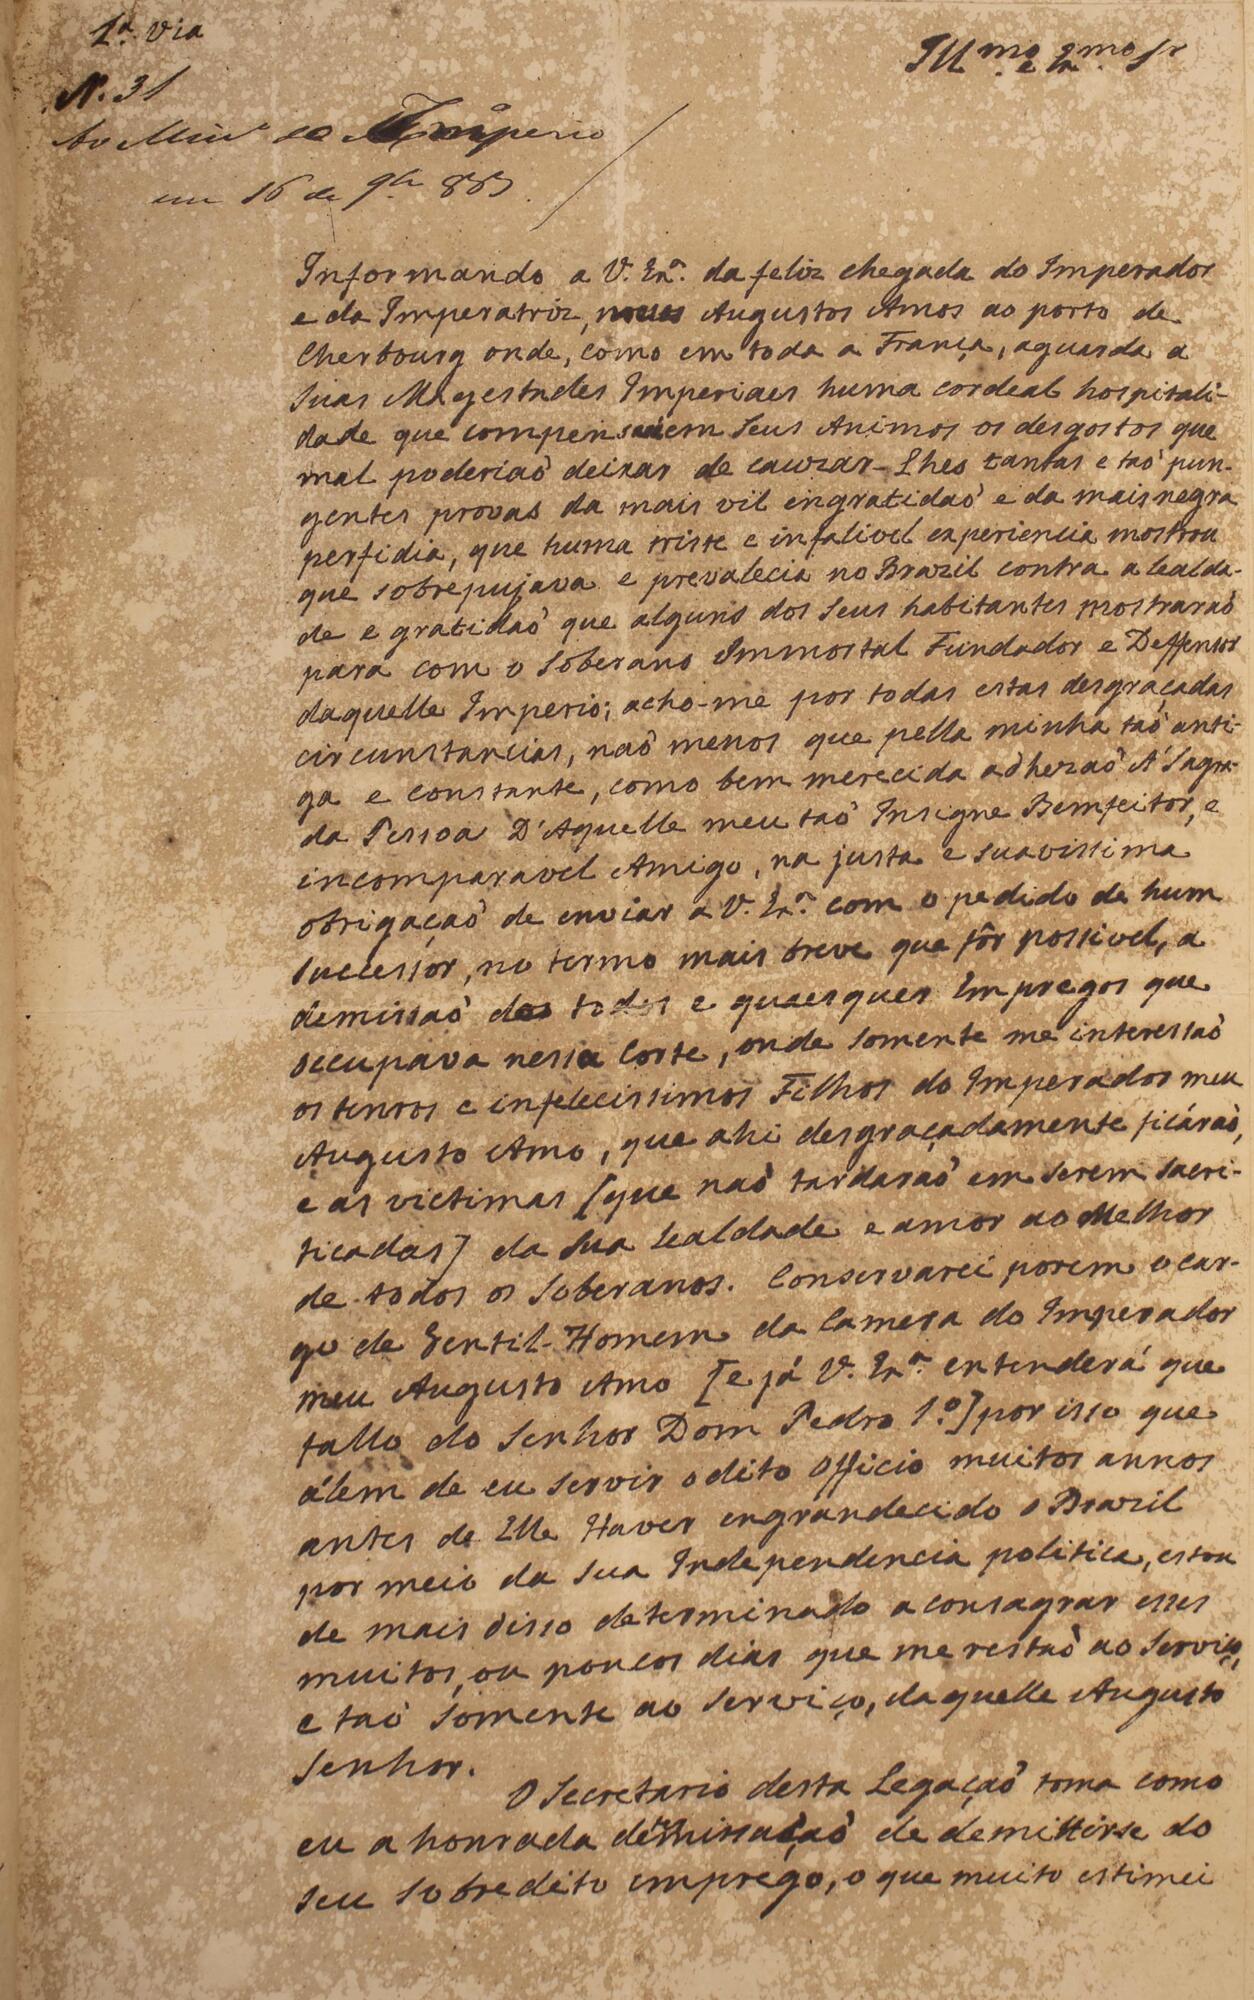 1ª Via
Illmo e Exmo Sr
N. 31
Ao Minº do Imperio
em 16 de 9br
Informando a V. Exª. da feliz chegada do Imperador
e da Imperatriz, Augustos Amos ao porto de
Cherbourg onde, como em toda a França, aguarda a
Suas Magestades Imperiaes huma cordeal hospitali-
dade que compensem Seus Animos os desgostos que
mal poderiaõ deixar de cauzar-Lhes tantas e taõ pun-
gentes provas da mais vil engratidaõ e da mais negra
perfidia, que huma triste e infalivel experiencia mostrou
que sobrepujava e prevalecia no Brazil contra a lealda-
de e gratidaõ que alguns dos Seus habitantes mostraraõ
para com o Soberano Immortal Fundador e Deffensor
daquelle Imperio; acho-me por todas estas desgraçadas
circunstancias, naõ menos que pella minha taõ anti-
ga e constante, como bem merecida adhezaõ Á Sagra-
da Pessoa D'Aquelle meu taõ Insigne Bemfeitor, e
incomparavel Amigo, na justa e suavissima
obrigaçaõ de enviar a V. Exª. com o pedido de hum
successor, no termo mais breve que fôr possivel, a
demissaõ de todos e quaesquer Empregos que
occupava nessa Corte, onde somente me interessaõ
os tenros e infelecissimos Filhos do Imperador meu
Augusto Amo, que ahi desgraçadamente ficáraõ,
e as victimas [que naõ tardaraõ em serem sacri-
ficadas] da Sua Lealdade e amor ao Melhor
de todos os Soberanos. Conservarei porem o car-
go de Gentil-Homem da Camera do Imperador
meu Augusto Amo [e já V. Exª. entenderá que
fallo do Senhor Dom Pedro 1.º] por isso que
álem de eu servir o dito Officio muitos annos
antes de Elle Haver engrandecido o Brazil
por meio da Sua Independencia politica, estou
de mais disso determinado a consagrar esses
muitos, ou poucos dias que me restaõ ao Serviço,
e taõ somente ao Serviço, daquelle Augusto
Senhor.
O Secretario desta Legaçaõ toma como
eu a honrada de demittirse do
seu sobredito emprego, o que muito estimei